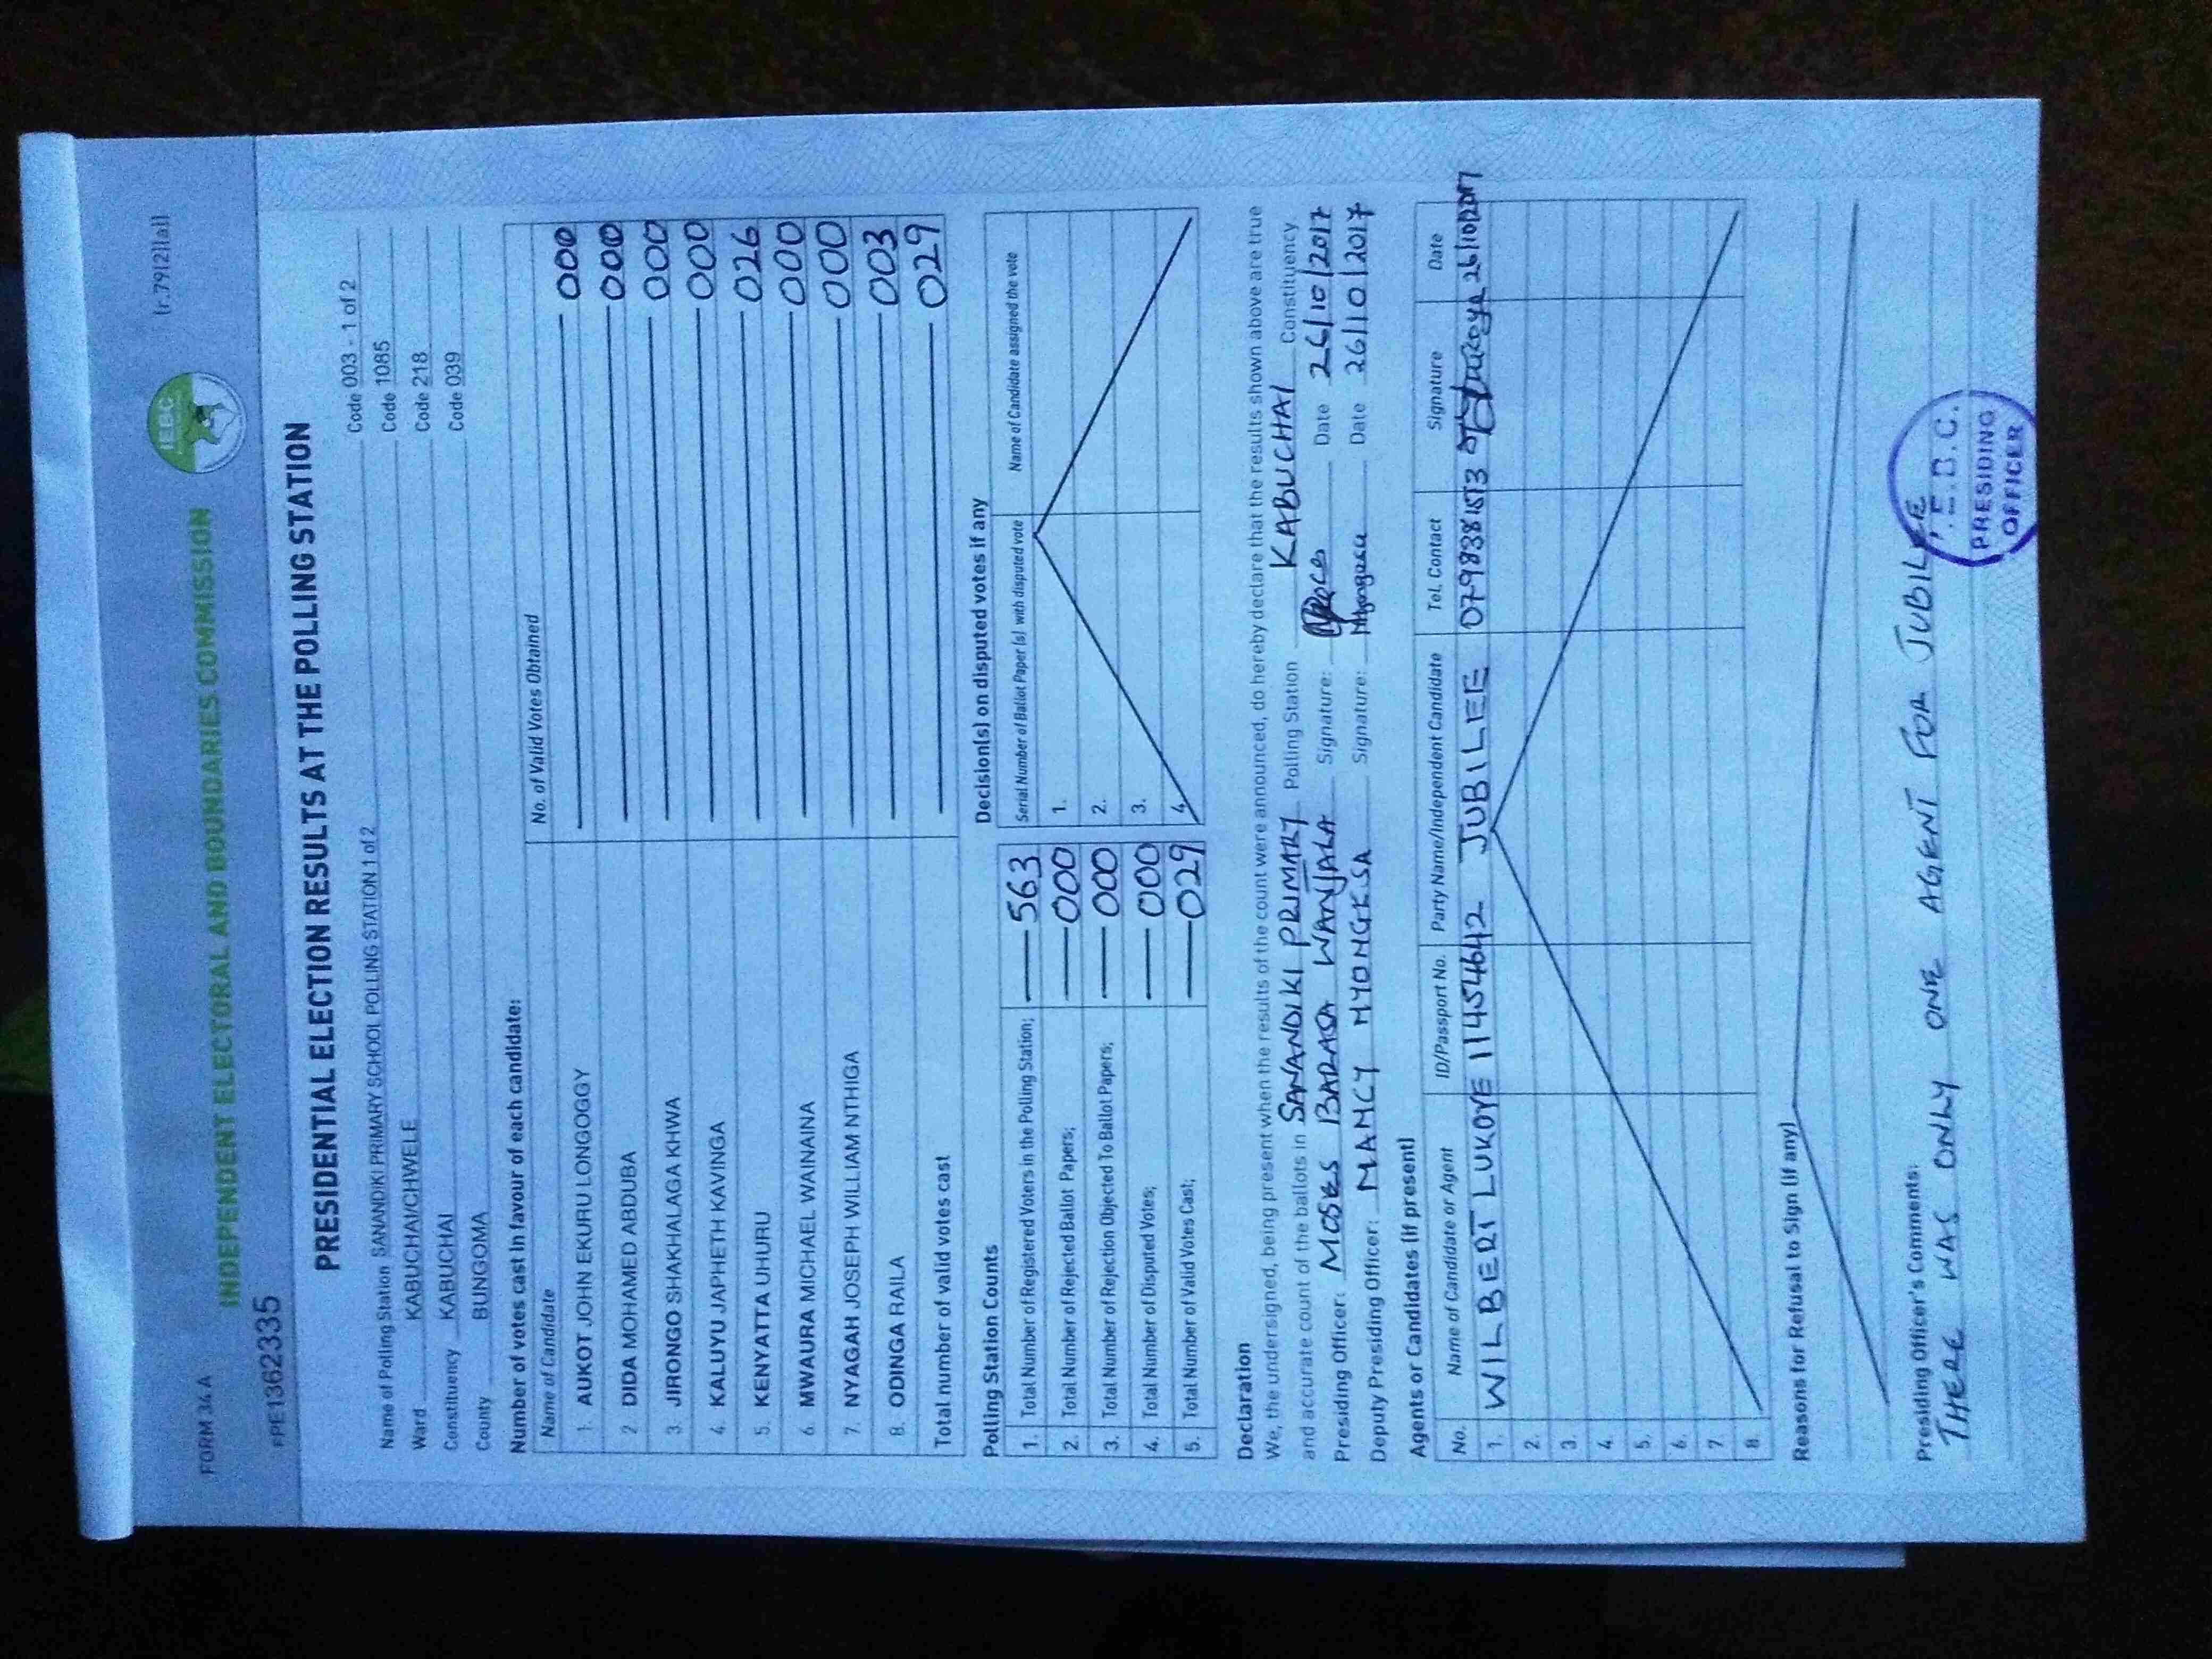 FORM 34 A
(r.79(2)(a))
IEBC
INDEPENDENT ELECTORAL AND BOUNDARIES COMMISSION
PPE1362335
PRESIDENTIAL ELECTION RESULTS AT THE POLLING STATION
Name of Polling Station SANANDIKI PRIMARY SCHOOL POLLING STATION 1 of 2 Code 003 - 1 of 2
Ward KABUCHAI/CHWELE Code 1085
Constituency KABUCHAI Code 218
County BUNGOMA Code 039
Number of votes cast in favour of each candidate:
Name of Candidate No. of Valid Votes Obtained
1. AUKOT JOHN EKURU LONGOGGY 000
2 DIDA MOHAMED ABDUBA 000
3 JIRONGO SHAKHALAGA KHWA 000
4. KALUYU JAPHETH KAVINGA 000
5. KENYATTA UHURU 026
6. MWAURA MICHAEL WAINAINA 000
7. NYAGAH JOSEPH WILLIAM NTHIGA 000
8. ODINGA RAILA 003
Total number of valid votes cast 029
Polling Station Counts
1. Total Number of Registered Voters in the Polling Station; 563
2. Total Number of Rejected Ballot Papers; 000
3. Total Number of Rejection Objected To Ballot Papers; 000
4. Total Number of Disputed Votes; 000
5. Total Number of Valid Votes Cast; 029
Decision(s) on disputed votes if any
Serial Number of Ballot Paper (s) with disputed vote Name of Candidate assigned the vote
1.
2.
3.
4.
Declaration
We, the undersigned, being present when the results of the count were announced, do hereby declare that the results shown above are true
and accurate count of the ballots in SANANDIKI PRIMARY Polling Station KABUCHAI Constituency
Presiding Officer: MOSES BARASA WANJALA Signature: Date 26/10/2017
Deputy Presiding Officer: NANCY NYONGESA Signature: Date 26/10/2017
Agents or Candidates (if present)
No. Name of Candidate or Agent ID/Passport No. Party Name/Independent Candidate Tel. Contact Signature Date
1. WILBERT LUKOYE 11454642 JUBILEE 26/10/2017
2.
3.
4.
5.
6.
7
8.
Reasons for Refusal to Sign (if any)
Presiding Officer's Comments:
THERE WAS ONLY ONE AGENT FOR JUBILEE
I.E.B.C.
PRESIDING
OFFICER